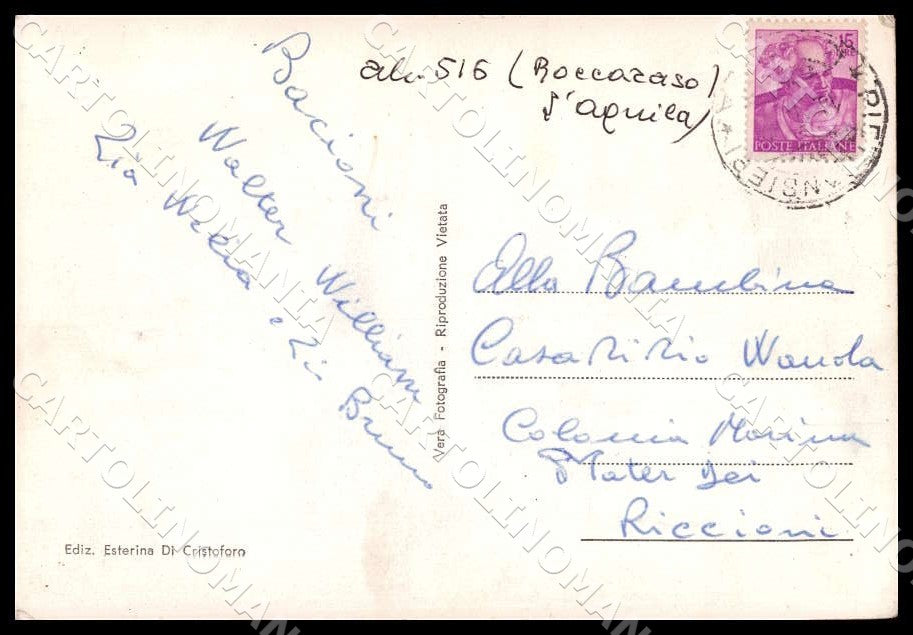 Bacioni
Walter William
Zia Velia e Zio Bruno
516 (Roccaraso)
L'aquila
15
LIRE
POSTE ITALIANE
PIETRANSIERI
Alla Bambina
Casatizio Wanda
Colonia Marina
Mater Dei
Riccioni
Vera Fotografia - Riproduzione Vietata
Ediz. Esterina Di Cristoforo
CARTOLINOMANIA